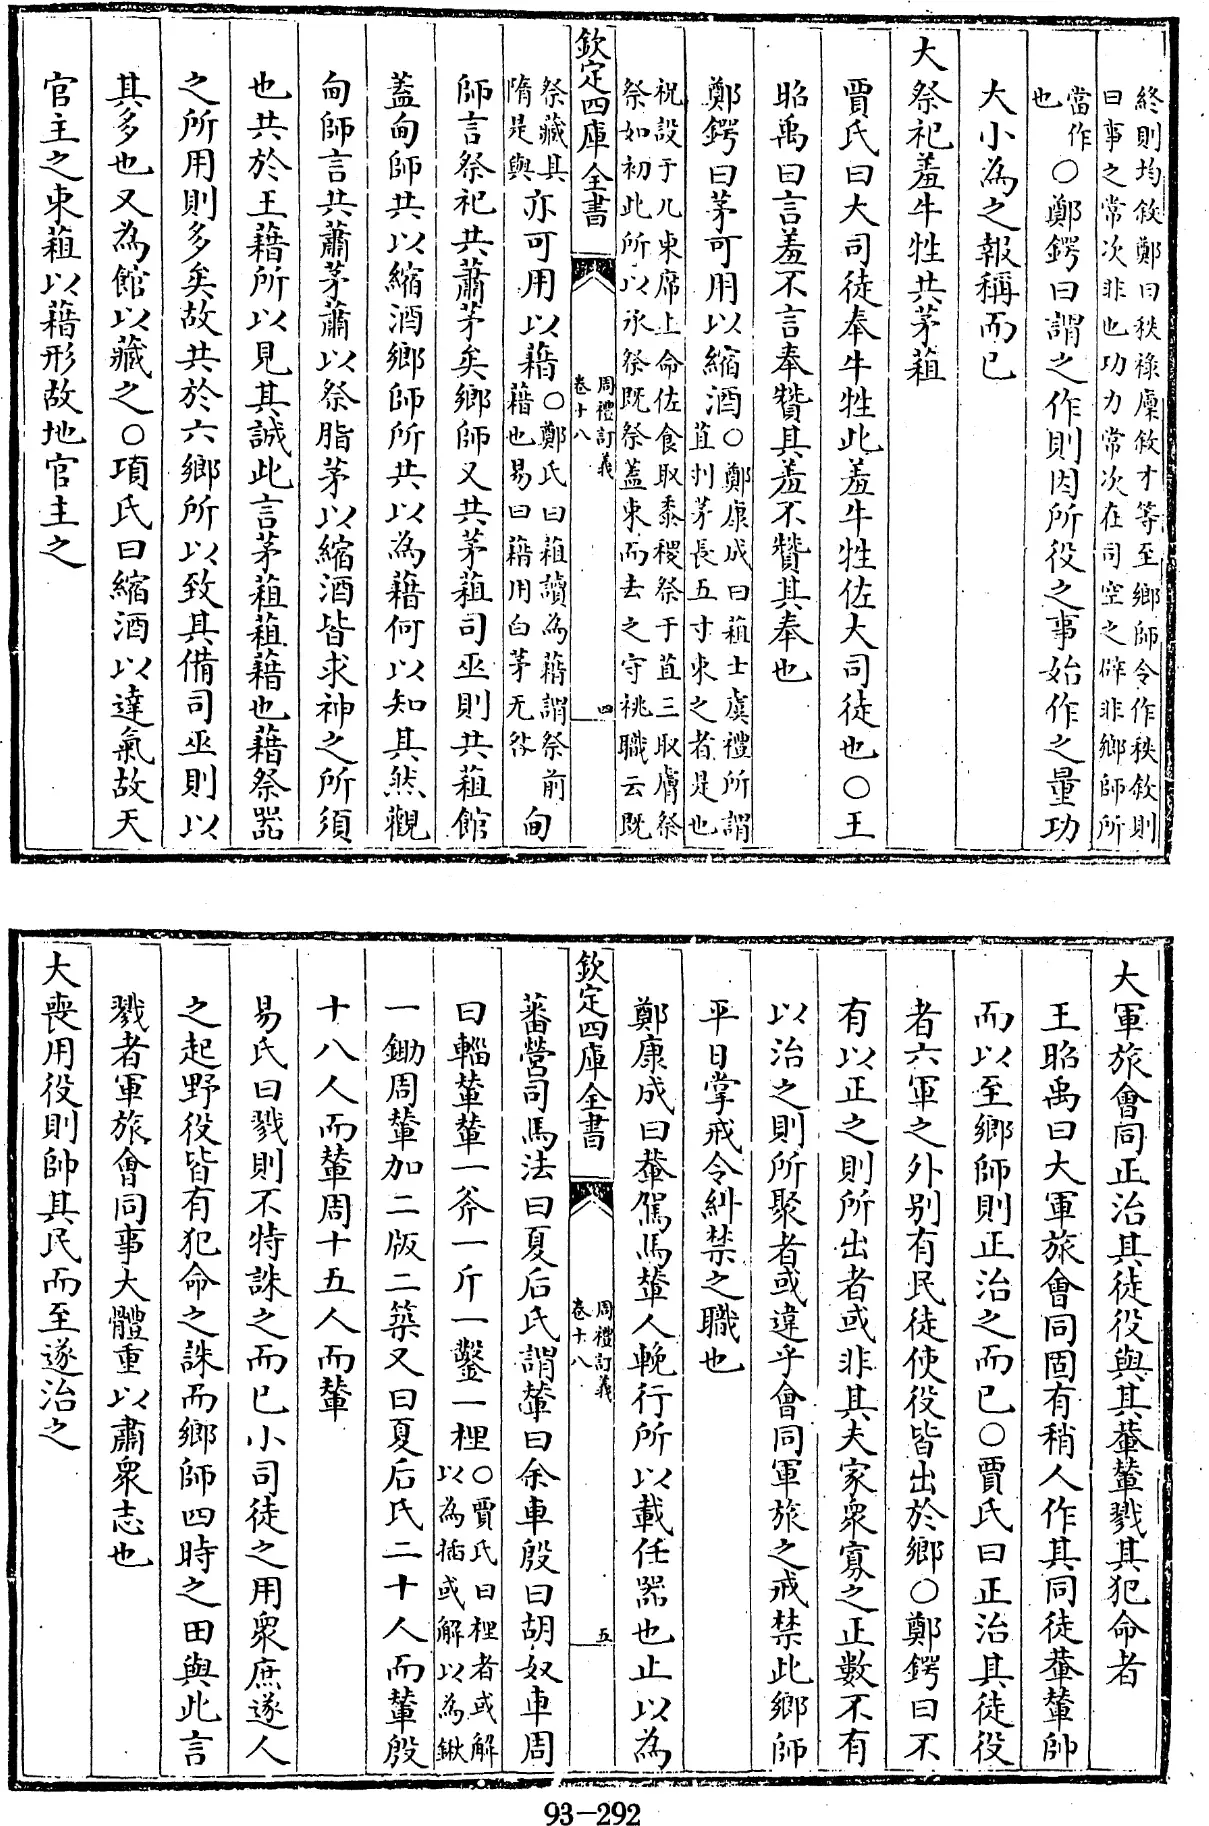 終則均敘鄭曰秩祿廩敘才等至鄉師令作秩敘則
曰事之常次非也功力常次在司空之辟非鄉師所
當作
也
○鄭鍔曰謂之作則因所役之事始作之量功
大小為之報稱而已
大祭祀羞牛牲共茅蒩
賈氏曰大司徒奉牛牲此羞牛牲佐大司徒也○王
昭禹曰言羞不言奉贊其羞不贊其奉也
鄭鍔曰茅可用以縮酒○鄭康成曰蒩士虞禮所謂
苴刌茅長五寸束之者是也
祝設于几東席上命佐食取黍稷祭于苴三取膚祭
祭如初此所以承祭既祭蓋束而去之守祧職云既
欽定四庫全書
周禮訂義
卷十八
四
祭藏其
隋是與
亦可用以藉○鄭氏曰蒩讀為藉謂祭前
藉也易曰藉用白茅无咎
甸
師言祭祀共蕭茅矣鄉師又共茅蒩司巫則共蒩館
蓋甸師共以縮酒鄉師所共以為藉何以知其然觀
甸師言共蕭茅蕭以祭脂茅以縮酒皆求神之所須
也共於王藉所以見其誠此言茅蒩蒩藉也藉祭器
之所用則多矣故共於六鄉所以致其備司巫則以
其多也又為館以藏之○項氏曰縮酒以達氣故天
官主之束蒩以藉形故地官主之
大軍旅會同正治其徒役與其輂輦戮其犯命者
王昭禹曰大軍旅會同固有稍人作其同徒輂輦帥
而以至鄉師則正治之而已○賈氏曰正治其徒役
者六軍之外別有民徒使役皆出於鄉○鄭鍔曰不
有以正之則所出者或非其夫家衆寡之正數不有
以治之則所聚者或違乎會同軍旅之戒禁此鄉師
平日掌戒令糾禁之職也
鄭康成曰輂駕馬輦人輓行所以載任器也止以為
欽定四庫全書
周禮訂義
卷十八
五
蕃營司馬法曰夏后氏謂輦曰余車殷曰胡奴車周
曰輜輦輦一斧一斤一鑿一梩○賈氏曰梩者或解
以為插或解以為鍬
一鋤周輦加二版二築又曰夏后氏二十人而輦殷
十八人而輦周十五人而輦
易氏曰戮則不特誅之而已小司徒之用衆庶遂人
之起野役皆有犯命之誅而鄉師四時之田與此言
戮者軍旅會同事大體重以肅衆志也
大喪用役則帥其民而至遂治之
93-292